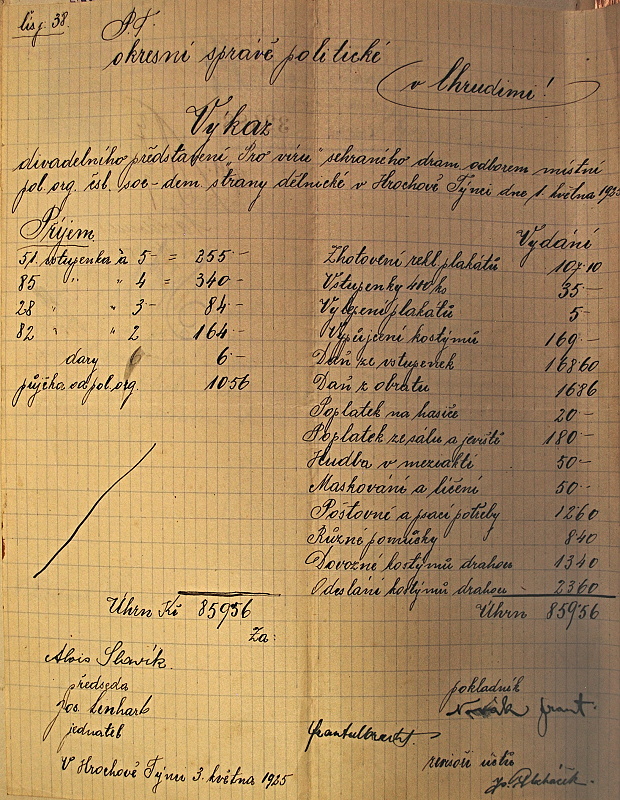 čís. j. 38.
P.T.
okresní správě politické
v Chrudimi!
Výkaz
divadelního představení „Pro víru" sehraného dram. odborem místní
pol. org. čsl. soc-dem. strany dělnické v Hrochově Týnci dne 1. května 1925
Příjem
51. vstupenka à 5 - = 255·-
85 " " 4 = 340·-
28 " " 3·- 84·-
82 " " 2 164·-
dary 6·-
půjčka od pol. org. 1056
Úhrn Kč 85956
Vydání
Zhotovení rekl. plakátů 107·10
Vstupenky 400 ks 35·-
Vylepení plakátů 5·-
Vypůjčení kostýmů 169·-
Daň ze vstupenek 16860
Daň z obratu 1686
Poplatek na hasiče 20·-
Poplatek ze sálu a jeviště 180·-
Hudba v meziaktí 50·-
Maskování a líčení 50·-
Poštovné a psací potřeby 1260
Různé pomůcky 840
Dovozné kostýmů drahou 1340
Odeslání kostýmů drahou - 2360
Úhrn 85956
Za:
Alois Slavík.
předseda
Jos. Lenhart
jednatel
pokladník
Novák Frant.
revisoři účtů
V Hrochově Týnci 3. května 1925